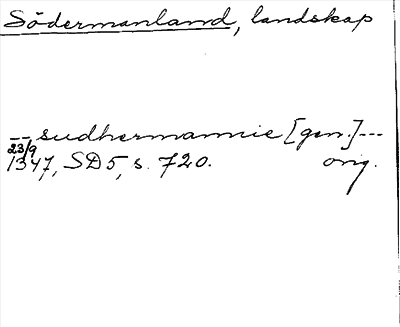 Södermanland, landskap
-- sudhermannie [gen.] ---
23/9
1347, SD5, s. 720. orig.